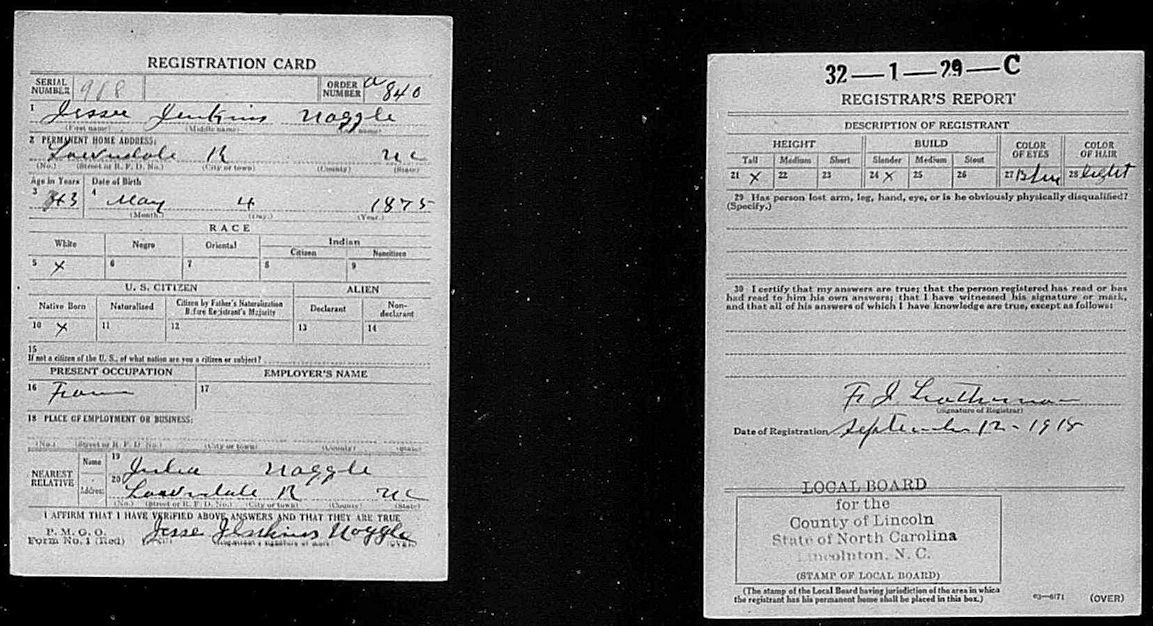 REGISTRATION CARD
SERIAL NUMBER 908 ORDER NUMBER a 840
1 Jesse Jenkins Noggle
(First name) (Middle name) name)
2 PERMANENT HOME ADDRESS:
Lawndale R NC
(No.) (Street or R. F. D. No.) (City or town) (County) (State)
Age in Years Date of Birth
3 43 4 May 4 1875
(Month.) (Day.) (Year.)
RACE
White Negro Oriental Indian
Citizen Noncitizen
5 X 6 7 8 9
U. S. CITIZEN ALIEN
Native Born Naturalized Citizen by Father's Naturalization Before Registrant's Majority Declarant Non-declarant
10 X 11 12 13 14
15
If not a citizen of the U. S., of what nation are you a citizen or subject?
PRESENT OCCUPATION EMPLOYER'S NAME
16 17
18 PLACE OF EMPLOYMENT OR BUSINESS:
(No.) (Street or R. F. D. No.) (City or town) (County) (State)
NEAREST RELATIVE Name 19 Julia Noggle
Address 20 Lawndale R NC
(No.) (Street or R. F. D. No.) (City or town) (County) (State)
I AFFIRM THAT I HAVE VERIFIED ABOVE ANSWERS AND THAT THEY ARE TRUE
P. M. G. O.
Form No. 1 (Red) Jesse Jenkins Noggle
(Registrant's signature or mark) (OVER)
32—1—29—C
REGISTRAR'S REPORT
DESCRIPTION OF REGISTRANT
HEIGHT BUILD COLOR OF EYES COLOR OF HAIR
Tall Medium Short Slender Medium Stout
21 X 22 23 24 X 25 26 27 Blue 28 light
29 Has person lost arm, leg, hand, eye, or is he obviously physically disqualified?
(Specify.)
30 I certify that my answers are true; that the person registered has read or has
had read to him his own answers; that I have witnessed his signature or mark,
and that all of his answers of which I have knowledge are true, except as follows:
(Signature of Registrar)
Date of Registration September 12 - 1918
LOCAL BOARD
for the
County of Lincoln
State of North Carolina
Lincolnton, N. C.
(STAMP OF LOCAL BOARD)
(The stamp of the Local Board having jurisdiction of the area in which
the registrant has his permanent home shall be placed in this box.)
03—6171 (OVER)